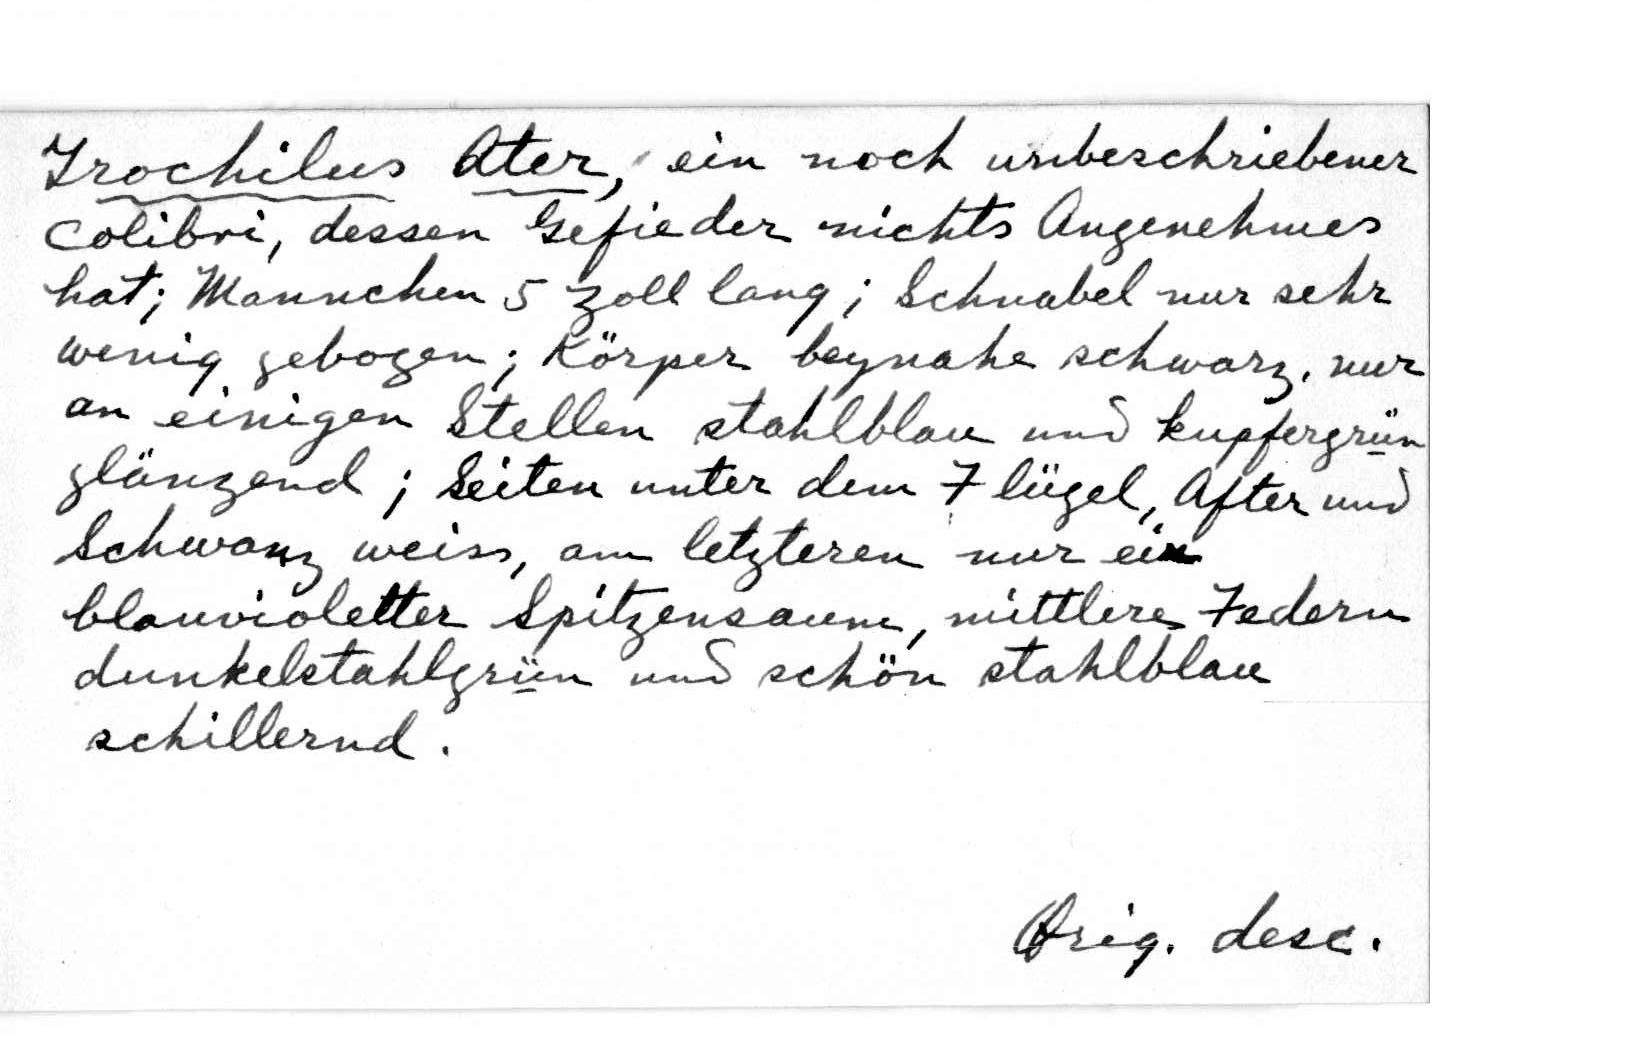 Trochilus Ater, ein noch unbeschriebener
Colibri, dessen Gefieder nichts Angenehmes
hat; Mannchen 5 Zoll lang; Schnabel nur sehr
wenig gebogen; Körper beynahe schwarz, nur
an einigen Stellen stahlblau und kupfergrün
glänzend; Seiten unter dem Flügel, After und
Schwanz weiss, am letzteren nur ein
blauvioletter Spitzensaum, mittlere Federn
dunkelstahlgrün und schön stahlblau
schillernd.
Orig. desc.